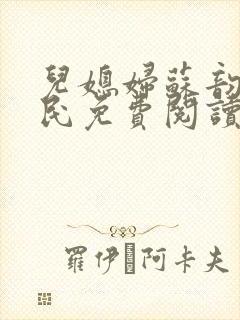 兒媳婦蘇韵
民免費閱讀
羅伊 阿卡夫